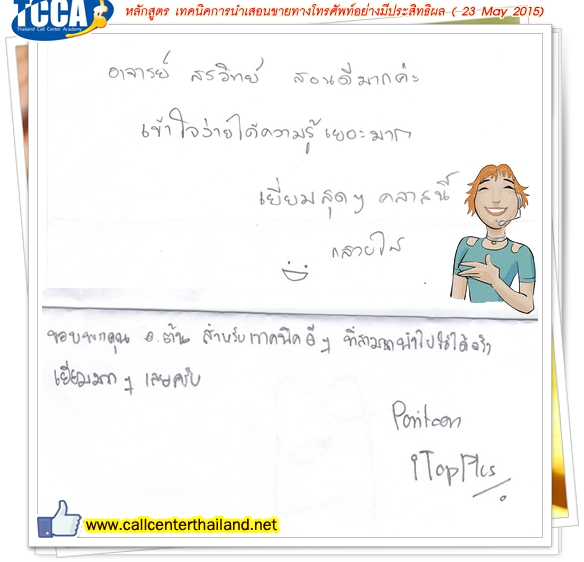 TCCA
Thailand Call Center Academy
หลักสูตร เทคนิคการนำเสนอขายทางโทรศัพท์อย่างมีประสิทธิผล ( 23 May 2015)
อาจารย์ สรวิทย์ สอนดีมากค่ะ
เข้าใจง่ายได้ความรู้เยอะมาก
เยี่ยมสุดๆ คลาสนี้
ขอบพระคุณ อ.ต้น สำหรับเทคนิคดีๆ ที่สามารถนำไปใช้ได้จริง
เยี่ยมมากๆ เลยครับ
iTopPlus
www.callcenterthailand.net